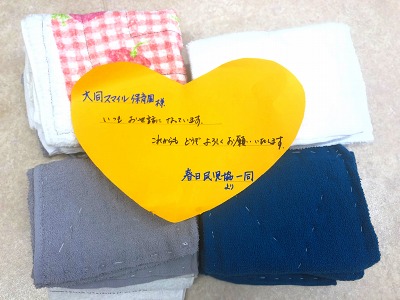 大同スマイル保育園様
いつも お世話に なっています。
これからも どうぞ よろしく お願い 致します。
春日民児協一同
より